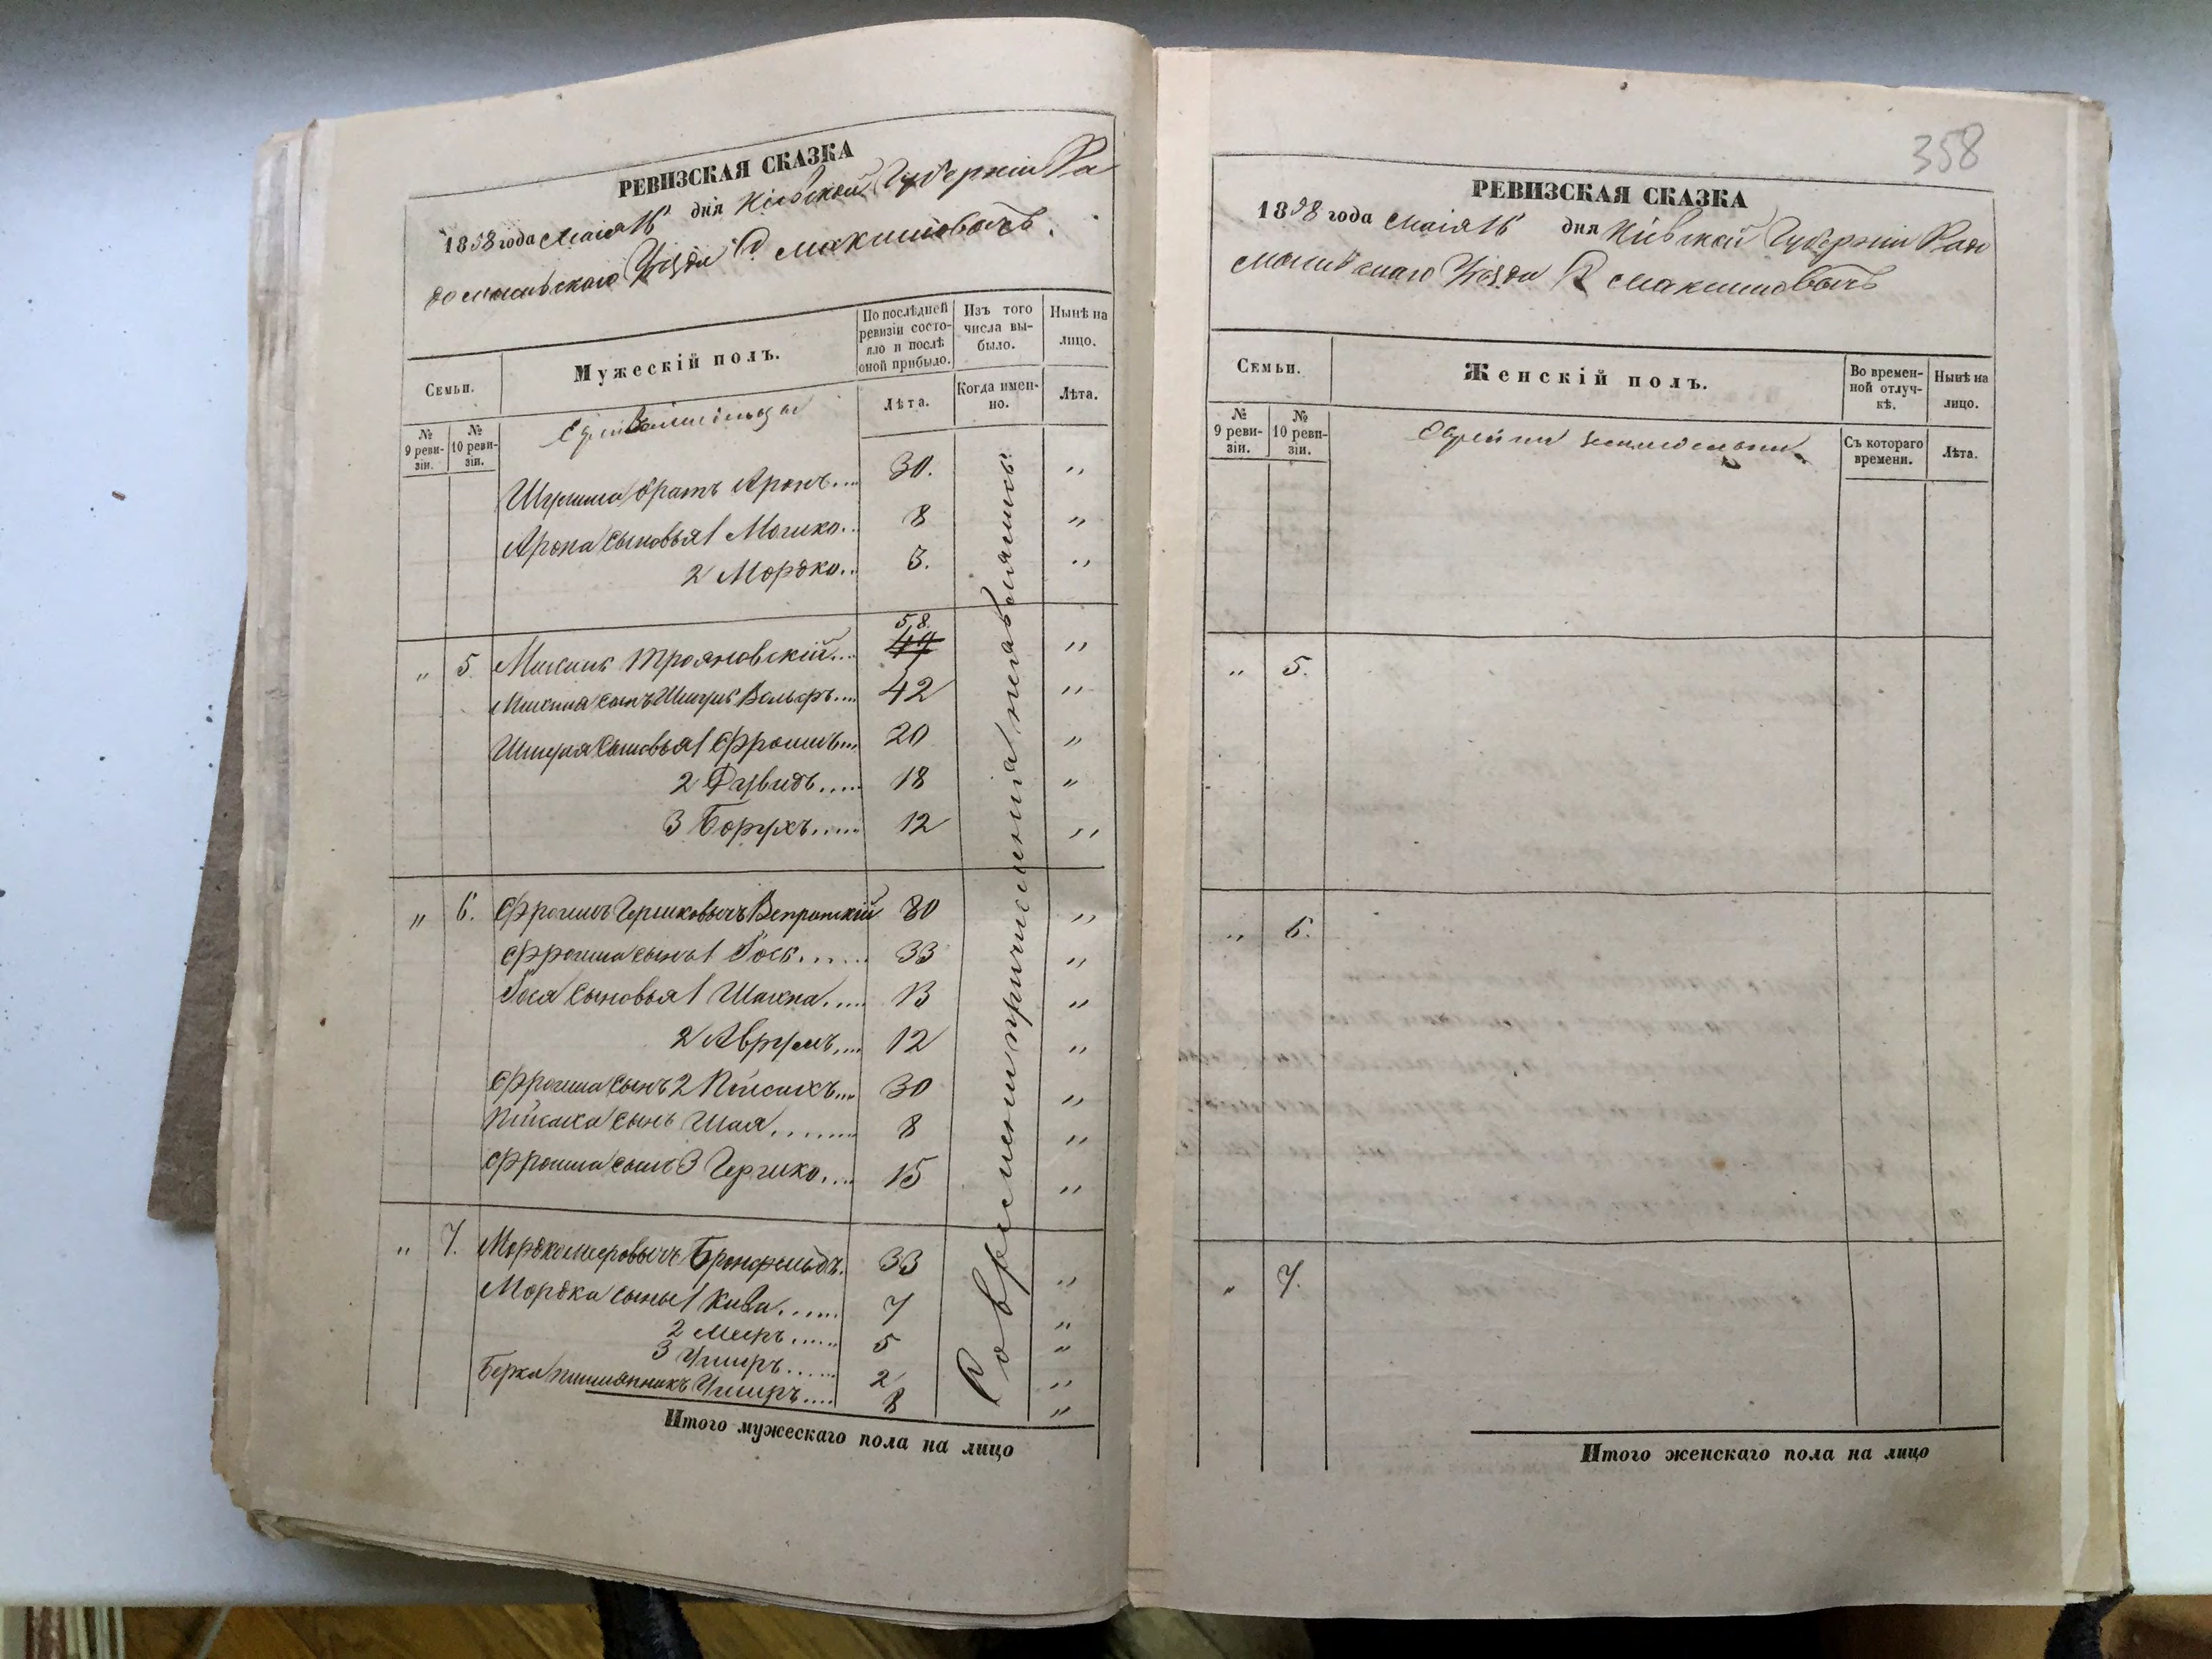 РЕВИЗСКАЯ СКАЗКА
1858 года Маія 16 дня Кіевской Губерніи Ра
домысльскаго Уѣзда Максимовичъ.
Семьи.
Мужескій полъ.
По послѣдней ревизіи состояло и послѣ оной прибыло.
Изъ того числа выбыло.
Нынѣ на лицо.
№ 9 ревизіи.
№ 10 ревизіи.
Лѣта.
Когда именно.
Лѣта.
братъ Аронъ.... 30. "
Арона сыновья 1 Мошко.. 8 "
2 Мордко.. 3. "
" 5. Трояновскій.... 58. 44 "
сынъ Шмуль Вольфъ.... 42 "
Шмуля сыновья 1 Фроимъ... 20 "
2 Дувидъ..... 18 "
3 Борухъ..... 12 "
" 6. Фроимъ Гершковичъ 80 "
Фроима сынъ 1 Іось...... 33 "
Іося сыновья 1 Шахна..... 13 "
2 Аврумъ.... 12 "
Фроима сынъ 2 Пейсахъ... 30 "
Пейсаха сынъ Шая........ 8 "
Фроима сынъ 3 Гершко.... 15 "
" 7. Мордко Мееровичъ Бронфельдъ. 33 "
Мордка сыны 1 Кива...... 7 "
2 Меиръ...... 5 "
3 Ушеръ...... 2 "
Берка племянникъ Ушеръ.... 8 "
Со времени причисленія неявлялись
Итого мужескаго пола на лицо
358
РЕВИЗСКАЯ СКАЗКА
1858 года Маія 16 дня Кіевской Губерніи Радо
мысльскаго Уѣзда Максимовичъ
Семьи.
Женскій полъ.
Во временной отлучкѣ.
Нынѣ на лицо.
№ 9 ревизіи.
№ 10 ревизіи.
Съ котораго времени.
Лѣта.
Еврейки земледельцы
" 5.
" 6.
" 7.
Итого женскаго пола на лицо